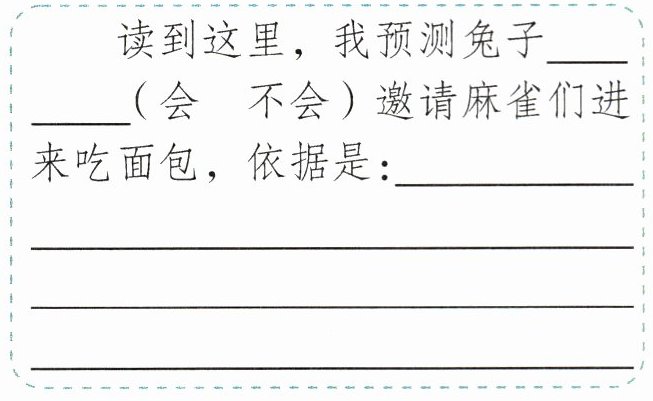 读到这里，我预测兔子____
____（会　不会）邀请麻雀们进
来吃面包，依据是：____